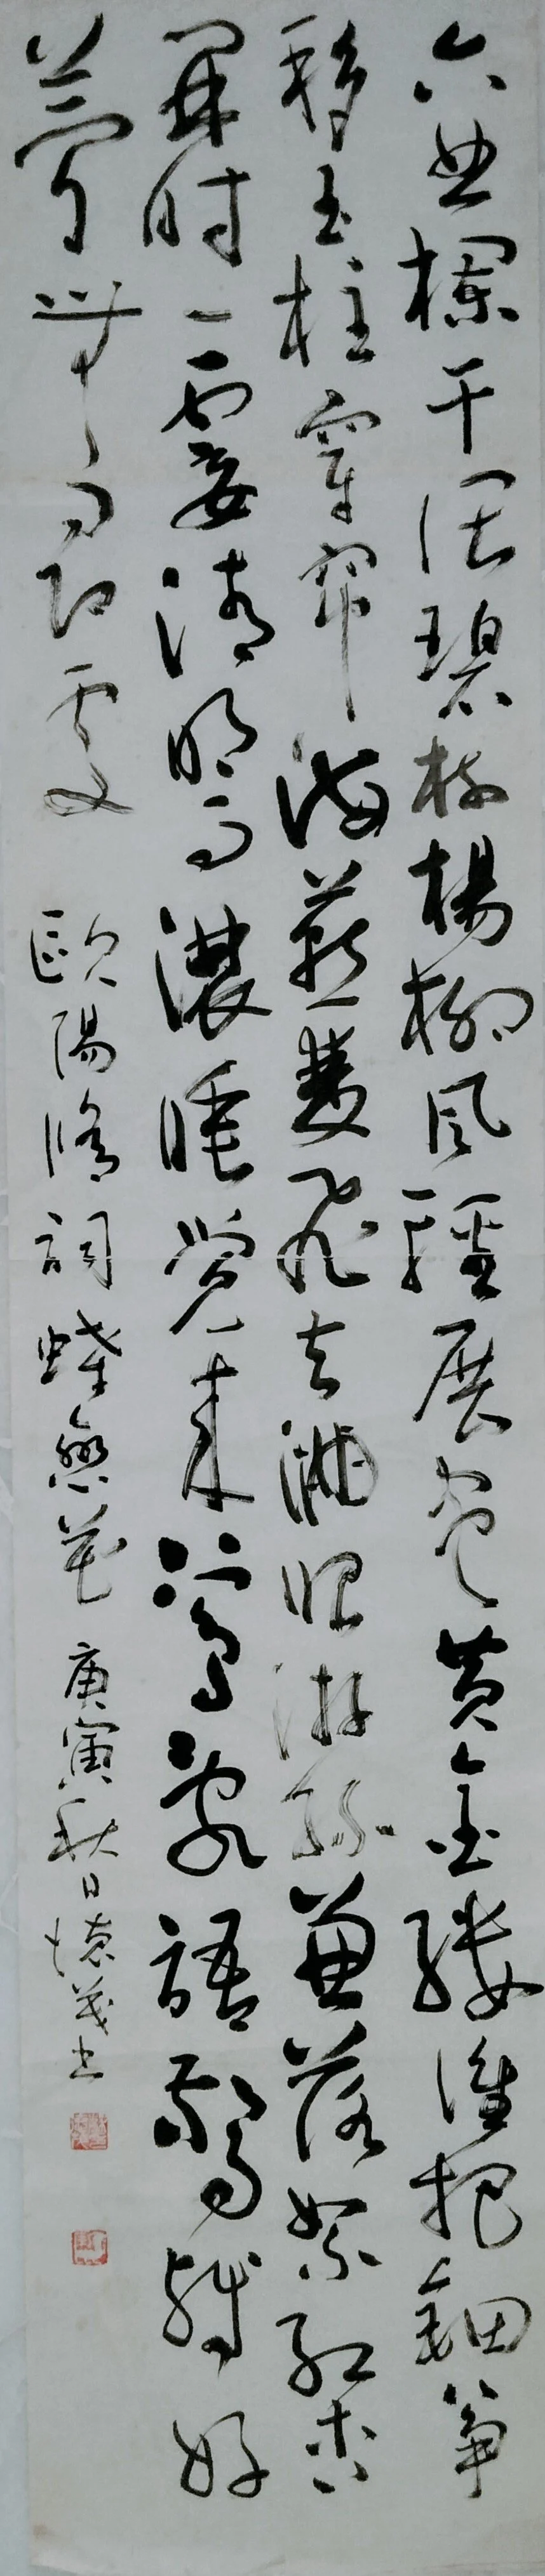 六曲欄干偎碧樹楊柳風輕展盡黃金縷誰把鈿筝
移玉柱穿簾海燕雙飛去滿眼游絲兼落絮紅杏
開時一霎清明雨濃睡覺來鶯亂語驚殘好
夢無尋處 歐陽脩詞蝶戀花 庚寅秋日德茂书